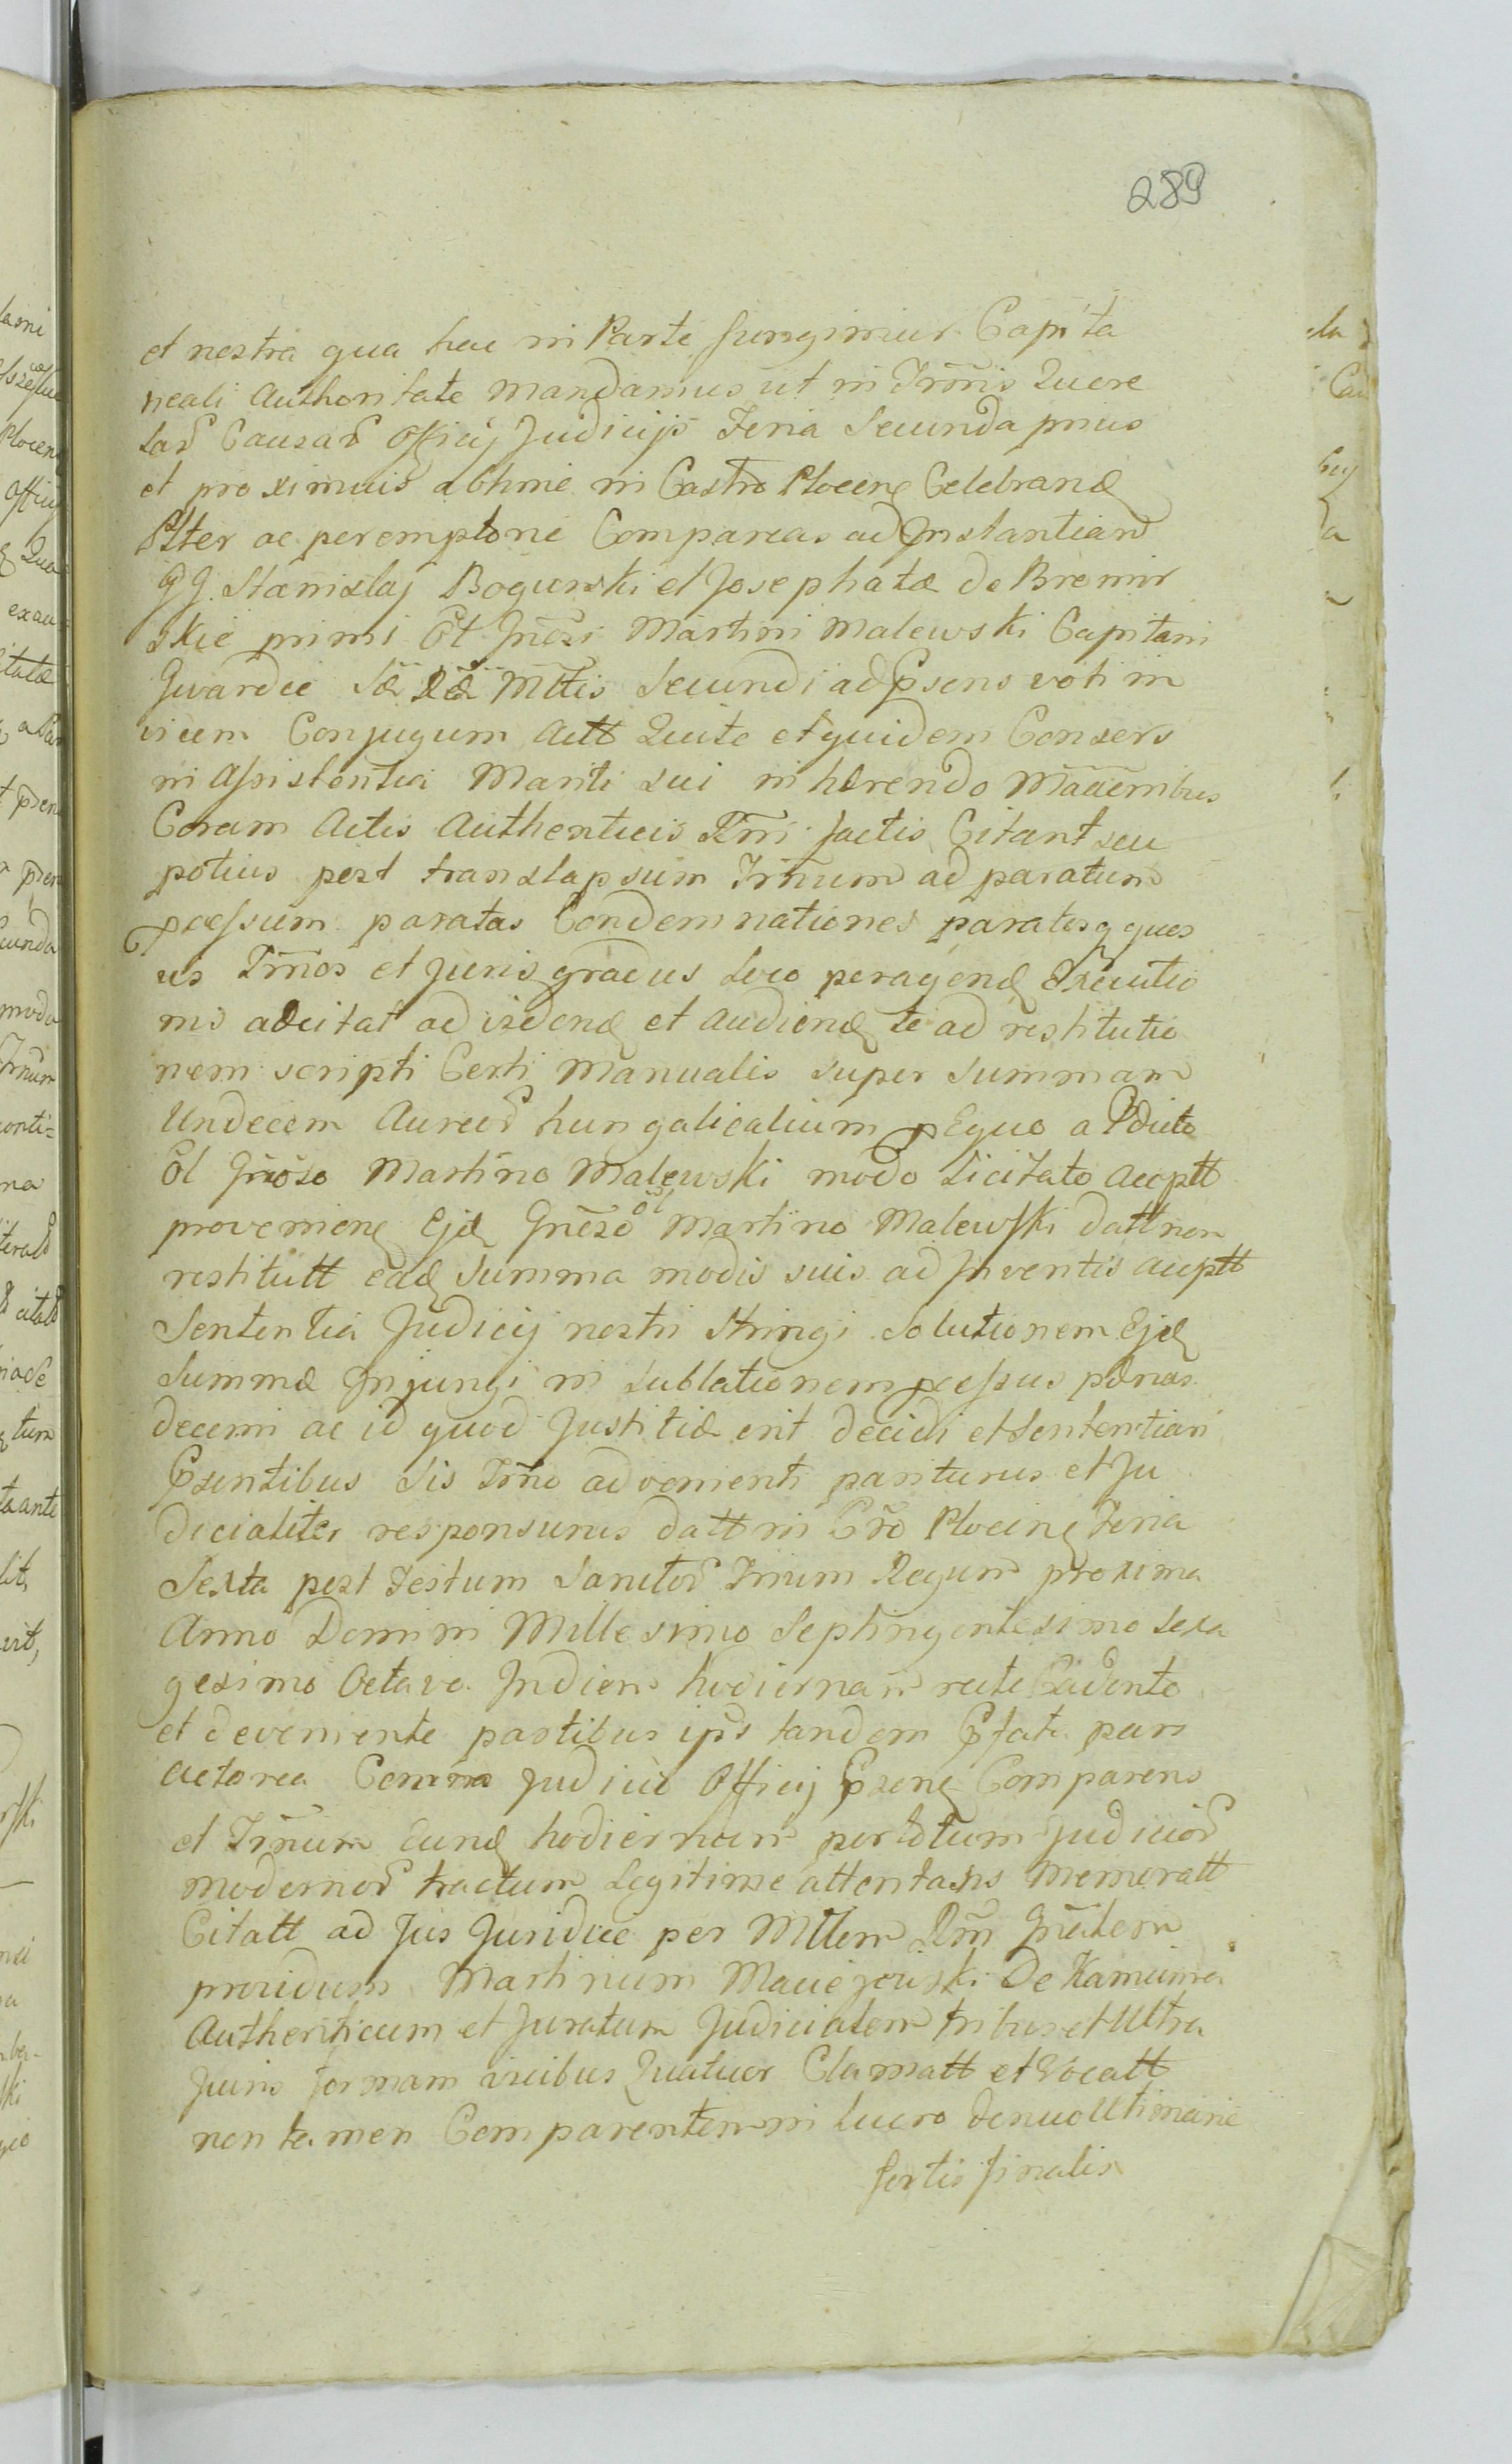 289
et nostra qua hac in Parte fungimur Capita
neali Authoritate Mandamus ut in Trm̃is Quere
lar̃ Causar̃ Officij Judicijs Feria Secunda prius
et proximius abhinc in Castro Plocen Celebrand
Plter ac peremptorie Compareas ad Instantiam
GG. Stanislaj Bogurski et Josephatæ de Bromir
skie primi Ol Gñosi Martini Malewski Capitani
Gwardie Sæ Ræ Mttis Secundi ad Psens voti in
vicem Conjugum Actt Quite et quidem Consers
in Assistentia Mariti sui inhærendo
Coram Actis Authenticis Trm̃i factis Citant seu
potius post translapsum Trm̃um ad paratum
pcessum paratas Condemnationes paratosq ques
us Trm̃os et Juris gradus Loco peragend Executio
nis adcitat ad videnḏ et audiend te ad restitutio
nem scripti Certi Manualis super Summam
Undecem Aureor̃ hungalicalium p Equo a Pdicto
Ol Gñoso Martino Malewski modo Licitato Accptt
provenienẹ Ejd Gñoso ol Martino Malewski datt non
restitutt ead Summa modis suis ad Inventis accptt
Sententia Judicij nostri Stringi Solutionem Ejd
Summæ Injungi in sublationem pcessus pænas
decerni ac id quod Justitiæ erit decidi et Sententiari
Psentibus Sis Trm̃o advenienti pariturus et Ju
dicialiter responsurus datt in Cr̃o Plocen Feria
Sexta post Festum Sanctor̃ Trium Regum proxima
Anno Domini Millesimo Septingentesimo Sexa
gesimo Octavo Indiem hodiernam recte Cadente
et deveniente partibus ips tandem Pfata pars
Actorea Coram Judicio Officij Psenẹ Comparens
et Trm̃um Eund hodiernum per totum Judicior̃
Modernor̃ tractum Legitime attentans Memoratt
Citatt ad Jus Juridice per Mttem Rm̃ Gñalem
providum Martinum Maciejowski De Kamienica
Authenticum et Juratum Judicialem tribus et Ultra
Juris formam vicibus Quatuor Clamatt et Vocatt
non tamen Comparentem in Lucro denuo Ultimarie
sortis finalis